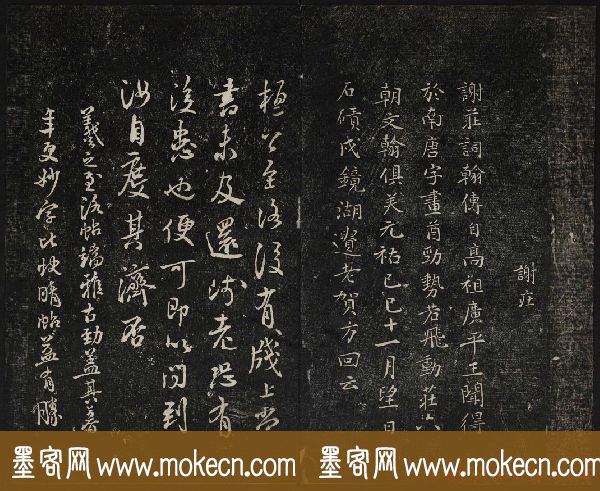 謝莊
謝莊詞翰傳自高祖廣平王聞得
於南唐字畫遒勁勢若飛動莊六
朝文翰俱美元祐己巳十一月望日
石磧戍鏡湖遺老賀方回云
桓公至洛後有牋上
書未及還此老恐有
後患也便可即以問到
汝自度其濟否
羲之至洛帖端雅古勁蓋其暮
年更妙字比快晴帖蓋有勝
墨客网 www.mokecn.com 墨客网 www.mokecn.com